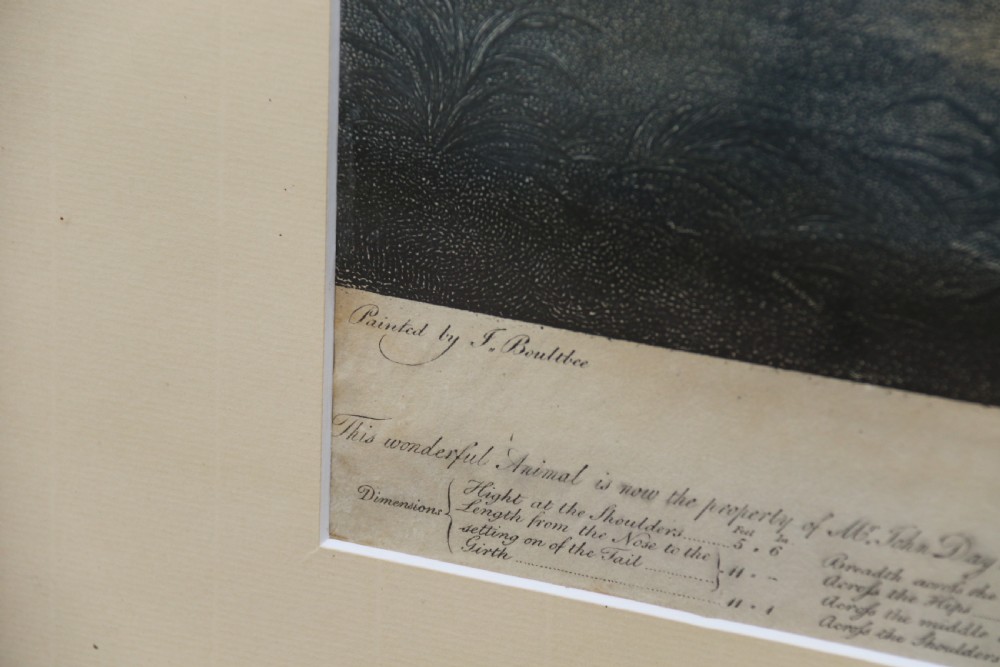 Painted by J. Boultbee
This wonderful Animal is now the property of Mr. John Day
Feet In
Dimensions { Hight at the Shoulders ........ 5 . 6
Length from the Nose to the
setting on of the Tail ............ } 11 . -
Girth ........................................ 11 . 1
Breadth across the
Across the Hips
Across the middle
Across the Shoulders